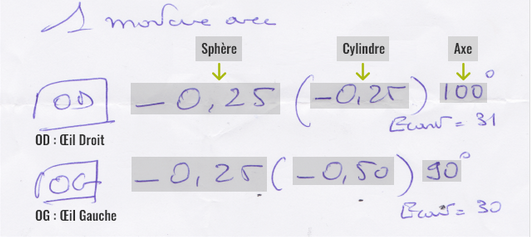 1 monture avec
Sphère Cylindre Axe
OD -0,25 (-0,25) 100°
Ecart = 31
OD : Œil Droit
OG -0,25 (-0,50) 90°
OG : Œil Gauche
Ecart = 30